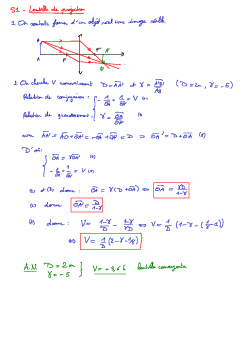 S1 - Lentille de projection
1. On souhaite former d'un objet réel une image réelle
A
B
F'
A'
B'
2. On cherche V connaissant D = AA' et γ = A'B'/AB (D = 2m, γ = -5)
Relation de conjugaison : -1/OA + 1/OA' = V (1)
Relation de grandissement : γ = OA'/OA (2)
avec AA' = AO + OA' = -OA + OA' = D ⇒ OA' = D + OA (3)
D'où
OA' = γOA (2)
-1/OA + 1/OA' = V (1)
donne : OA' = γ(D + OA')
donne OA = D/
donne : V = 1-γ/D - 1-γ/γD ⇔ V = 1/D (1-γ-(1/γ-1))
⇔ V = 1/D (2-γ-1/γ)
A.N D = 2m
γ = -5
V = +3,6 δ lentille convergente